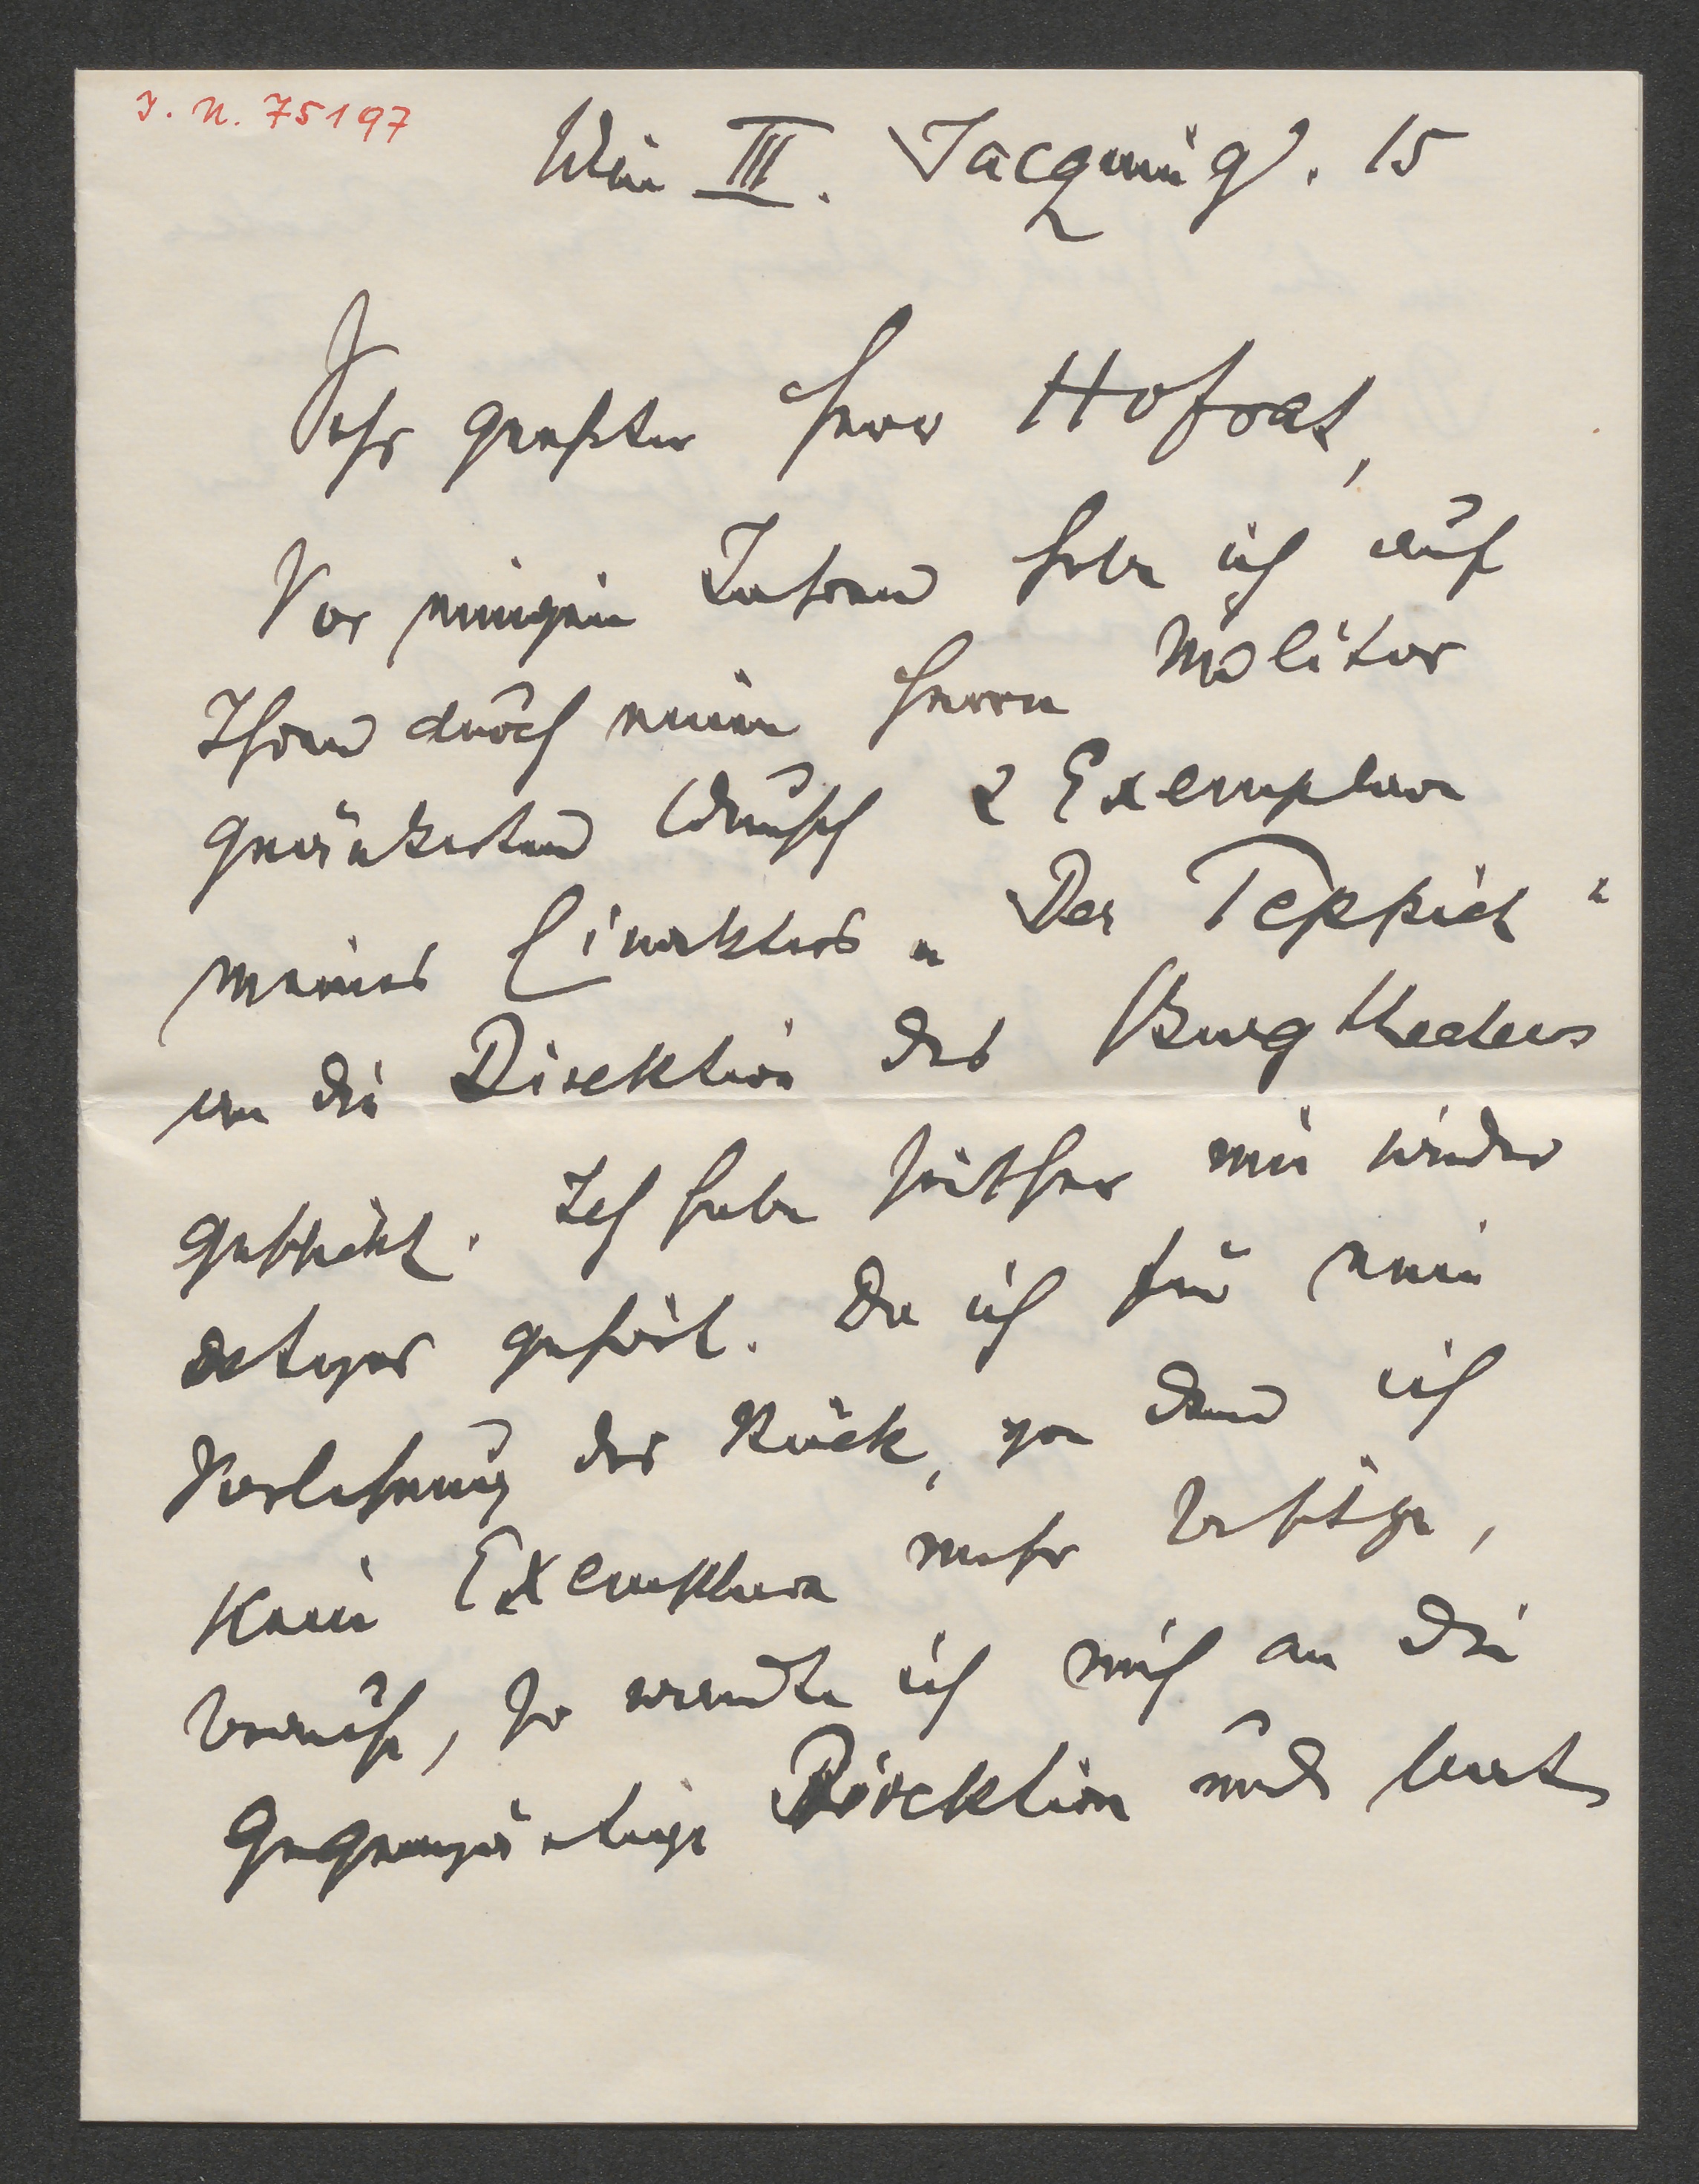 I. N. 75197
Wien III. Jacquing. 15
Sehr geehrter Herr Hofrat,
Vor einigen Jahren habe ich auf
Ihren durch einen Herrn Molitor
geäußerten Wunsch 2 Exemplare
meines Einakters „Der Teppich“
an die Direktion des Burgtheaters
geschickt. Ich habe seither nie wieder
etwas gehört. Da ich für eine
Vorlesung das Stück, von dem ich
kein Exemplar mehr besitze,
brauche, so wandte ich mich an die
gegenwärtige Direktion und bat